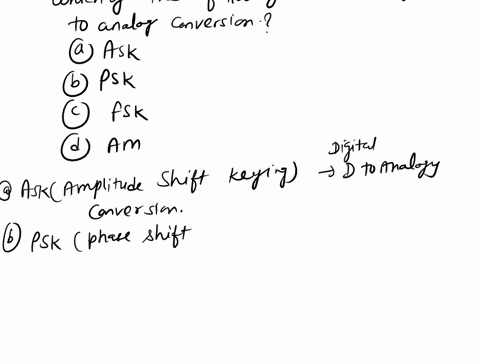 to analog conversion?
(a) Ask
(b) Psk
(c) fsk
(d) Am
Digital
(a) Ask (Amplitude Shift Keying) → D to Analogy
Conversion.
(b) PSK (phase shift